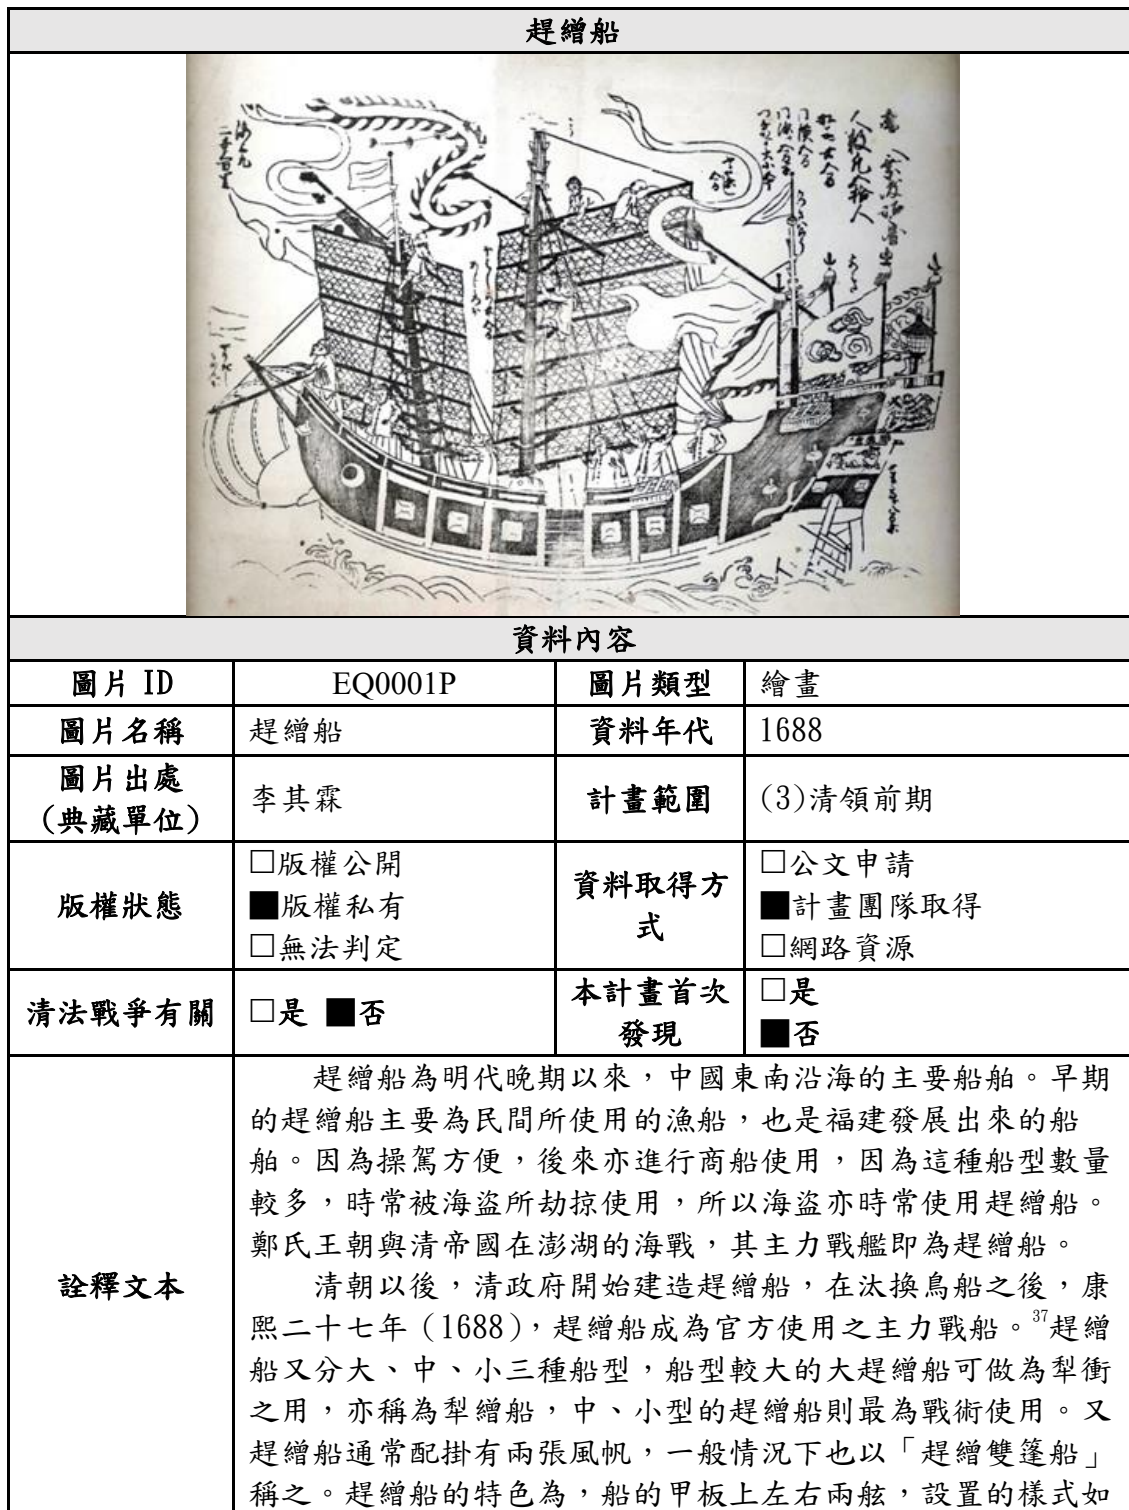 趕繒船
人數凡八拾人
資料內容
圖片 ID
EQ0001P
圖片類型
繪畫
圖片名稱
趕繒船
資料年代
1688
圖片出處
(典藏單位)
李其霖
計畫範圍
(3)清領前期
版權狀態
□版權公開
■版權私有
□無法判定
資料取得方
式
□公文申請
■計畫團隊取得
□網路資源
清法戰爭有關
□是 ■否
本計畫首次
發現
□是
■否
詮釋文本
趕繒船為明代晚期以來，中國東南沿海的主要船舶。早期
的趕繒船主要為民間所使用的漁船，也是福建發展出來的船
舶。因為操駕方便，後來亦進行商船使用，因為這種船型數量
較多，時常被海盜所劫掠使用，所以海盜亦時常使用趕繒船。
鄭氏王朝與清帝國在澎湖的海戰，其主力戰艦即為趕繒船。
清朝以後，清政府開始建造趕繒船，在汰換鳥船之後，康
熙二十七年（1688），趕繒船成為官方使用之主力戰船。37趕繒
船又分大、中、小三種船型，船型較大的大趕繒船可做為犁衝
之用，亦稱為犁繒船，中、小型的趕繒船則最為戰術使用。又
趕繒船通常配掛有兩張風帆，一般情況下也以「趕繒雙篷船」
稱之。趕繒船的特色為，船的甲板上左右兩舷，設置的樣式如